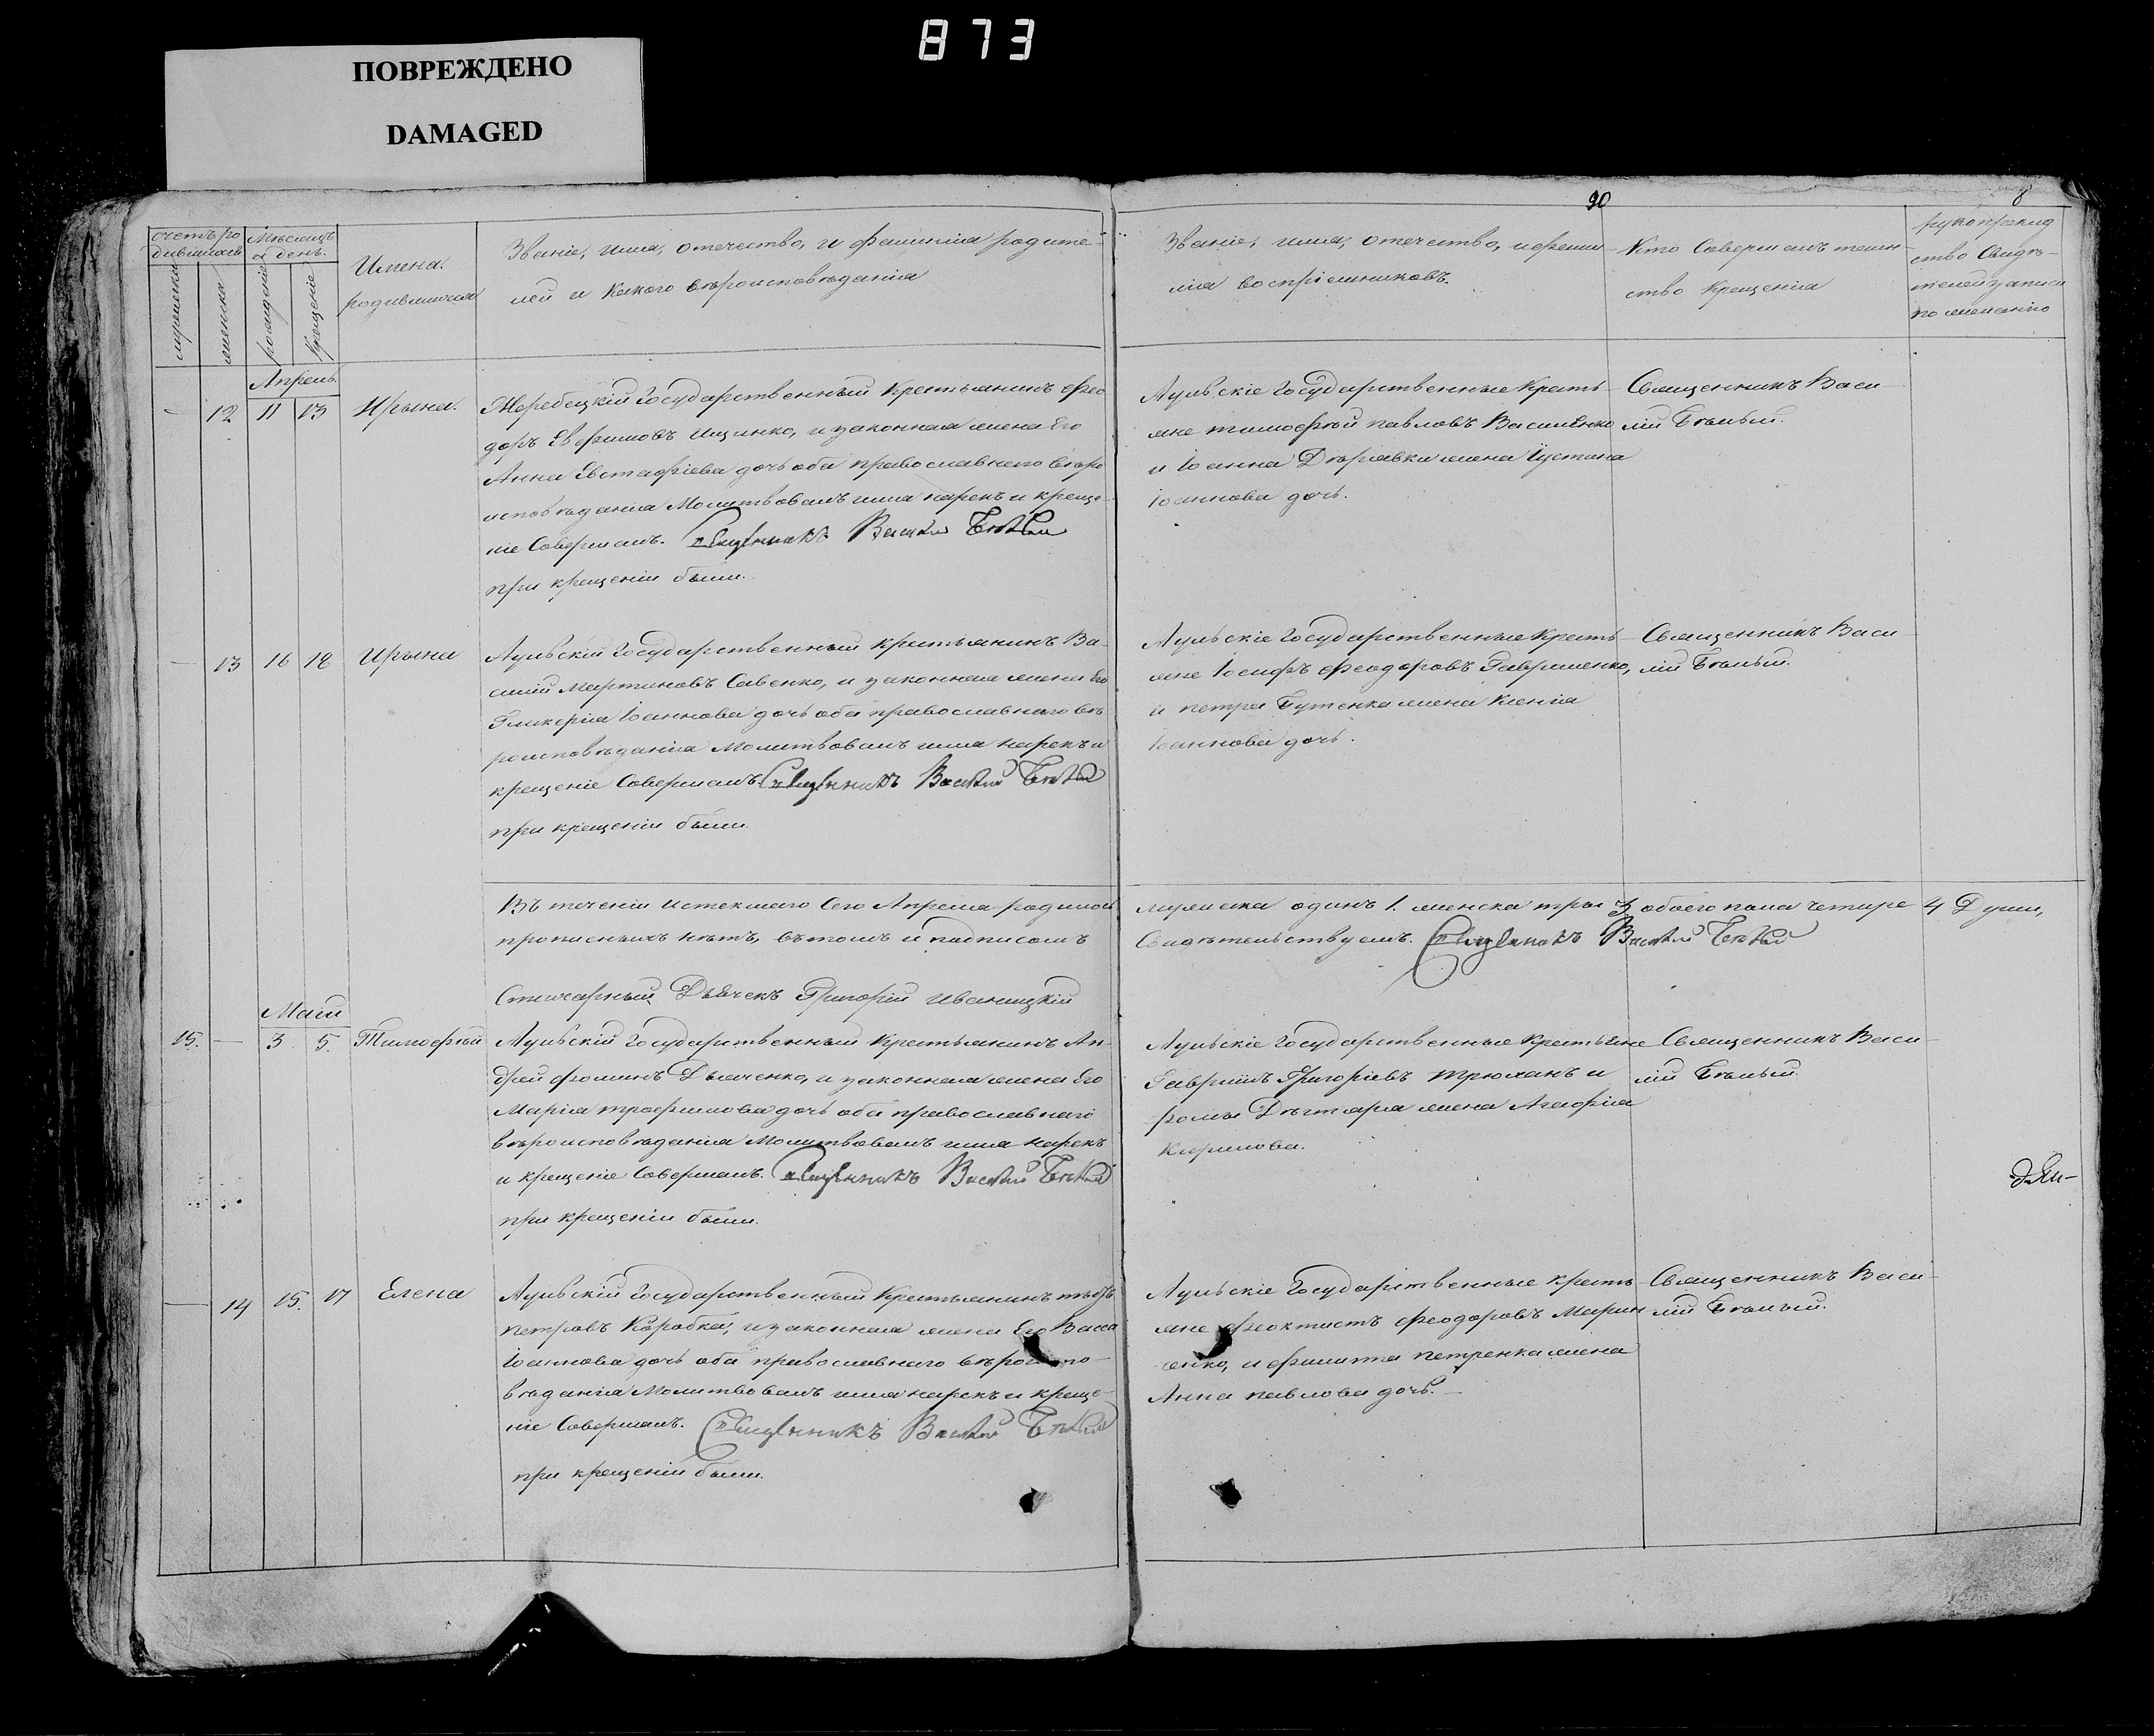 873
ПОВРЕЖДЕНО
DAMAGED
90
8
счетъ ро
дившихся
Мѣсяцъ
и день.
мужеска
женска
рожденіе
крещеніе
Имена
родившихся
Званіе, имя, отечество, и фамилія родите-
лей и какого вѣроисповѣданія
Званіе, имя, отечество, и фами-
лія воспріемниковъ.
Кто совершалъ таин-
ство крещенія
рукоприклад
ство свидѣ-
телей записи
по желанію
Апрель.
- 12 11 13 Ирына.
Жеребецкій Государственный Крестьянинъ Фео
доръ Евфимовъ Ищенко, и законная жена его
Анна Евстафіева дочь оба православнаго вѣро
исповѣданія Молитвовалъ имя нарекъ и креще-
ніе Совершалъ. Священникъ Василій Бѣлый
при крещеніи были.
Аульскіе Государственные Кресть-
яне тимофѣй павловъ Василенко
и Іоанна Дѣржавки жена Іустина
Іоаннова дочь.
Священникъ Васи
лій Бѣлый.
- 13 16 18 Ирына
Аульскій Государственный крестьянинъ Ва-
силій Мартиновъ Савенко, и законная жена Его
Гликерія Іоаннова дочь оба православнаго вѣ
роисповѣданія Молитвовалъ имя нарекъ и
крещеніе Совершалъ. Священникъ Василій Бѣлый
при крещеніи были.
Аульскіе Государственные Кресть-
яне Іосифъ Феодоровъ Гавриленко,
и петра Бутенка жена Ксенія
Іоаннова дочь.
Священникъ Васи
лій Бѣлый.
Въ теченіи истекшаго Сего Апреля родилось
мужеска одинъ 1. женска тры 3 обоего пола четыре 4 Души,
прописныхъ нѣтъ, вътомъ и подписомъ
Свидѣтельствуемъ. Священникъ Василій Бѣлый
Стихарный Дьячекъ Григорій Иваницкій
Маій
15. - 3 5. Тимофѣй
Аульскій Государственный Крестьянинъ Ан-
дрей фоминъ Дьяченко, и законная жена Его
Марія трофимова дочь оба православнаго
вѣроисповѣданія Молитвовалъ имя нарекъ
и крещеніе Совершалъ. Священникъ Василій Бѣлый
при крещеніи были.
Аульскіе Государственные Крестьяне
Гавріилъ Григоріевъ трюханъ и
фомы Дѣгтяря жена Агафія
Кирилова.
Священникъ Васи-
лій Бѣлый.
- 14 15. 17 Елена
Аульскій Государственный Крестьянинъ
петровъ Коробка, и законная жена Его Васса
Іоаннова дочь оба православнаго вѣроиспо-
вѣданія Молитвовалъ имя нарекъ и креще-
ніе Совершалъ. Священникъ Василій Бѣлый
при крещеніи были.
Аульскіе Государственные кресть-
яне Феоктистъ Феодоровъ Марин
ченко, и филиппа петренка жена
Анна павлова дочь.
Священникъ Васи
лій Бѣлый.